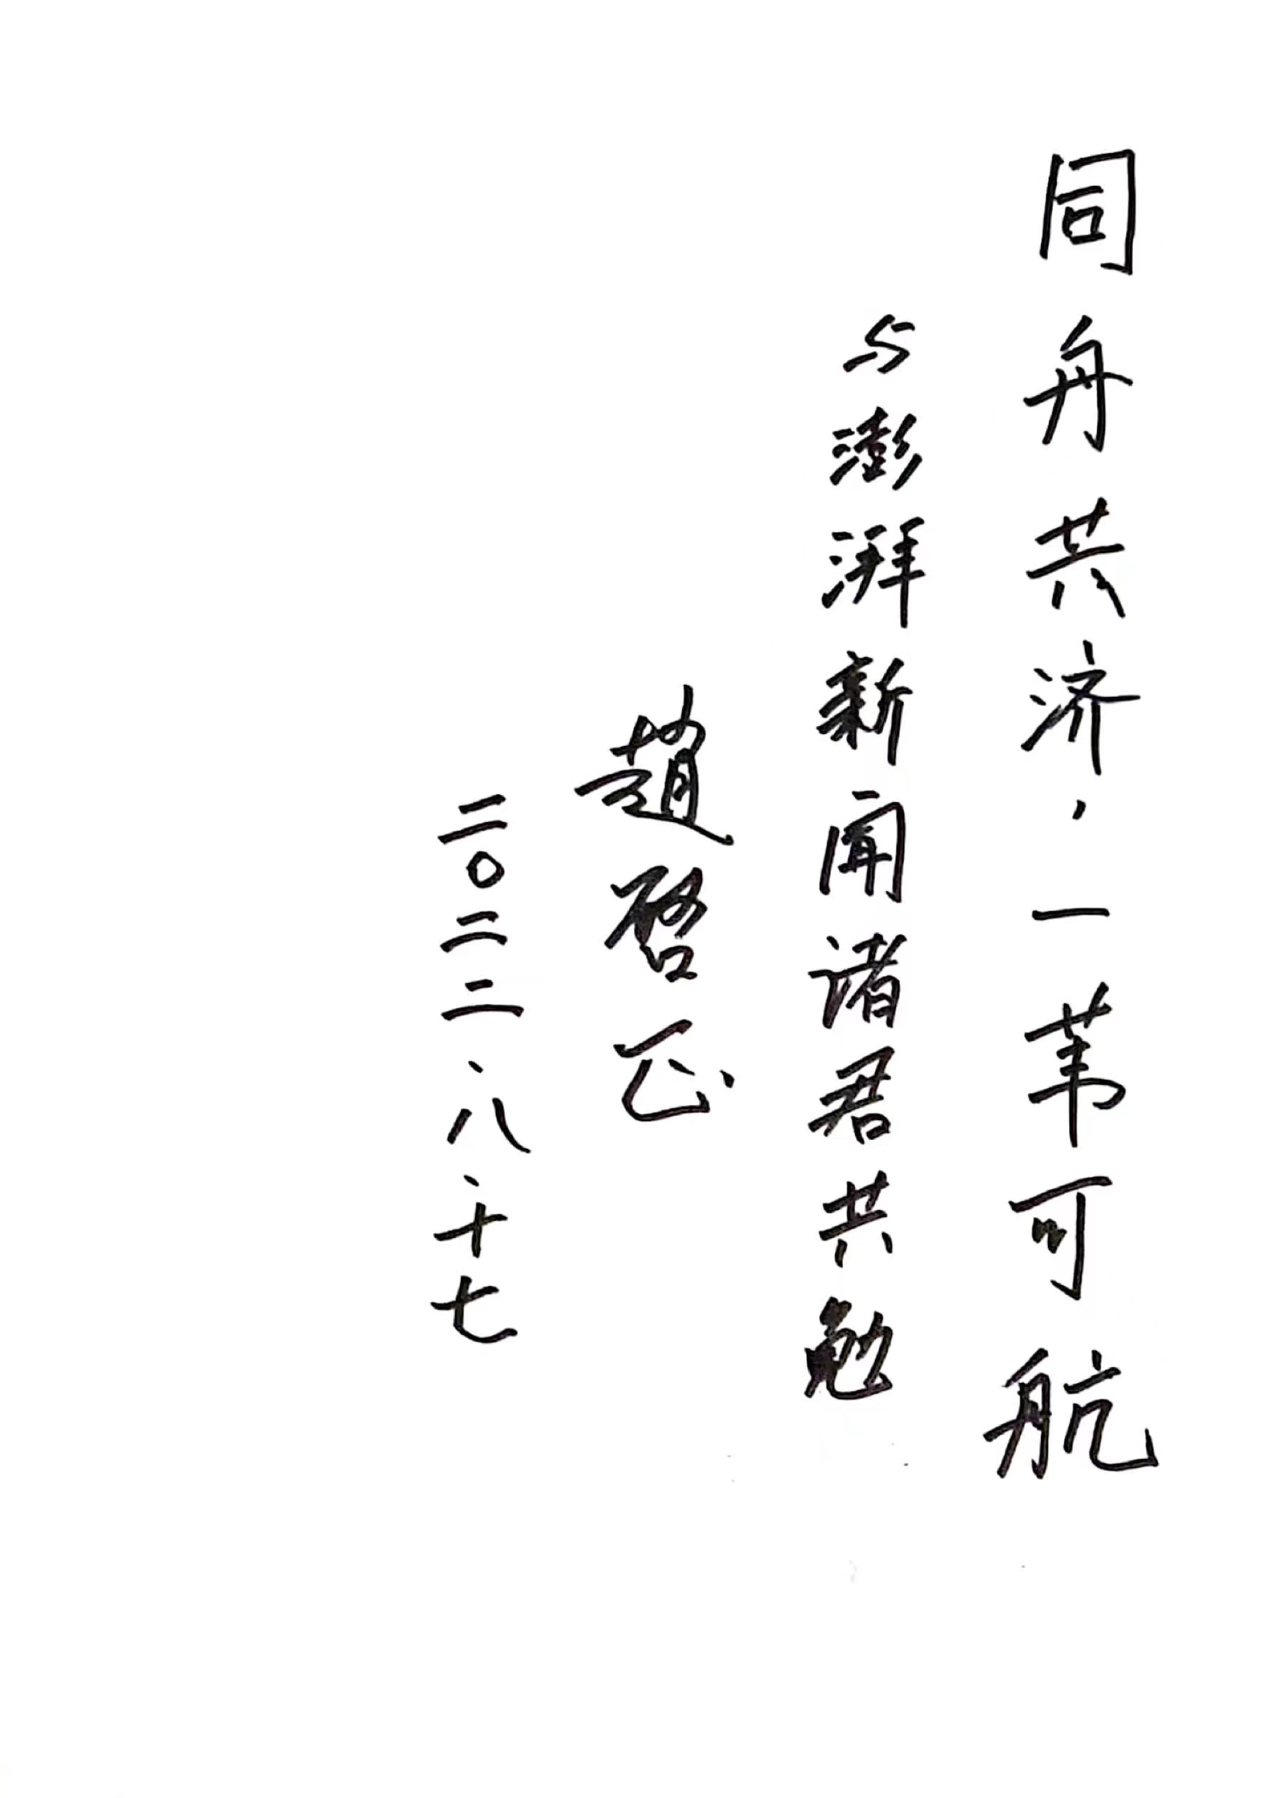 同舟共济，一苇可航
与澎湃新闻诸君共勉
趙啓正
二〇二二.八.十七